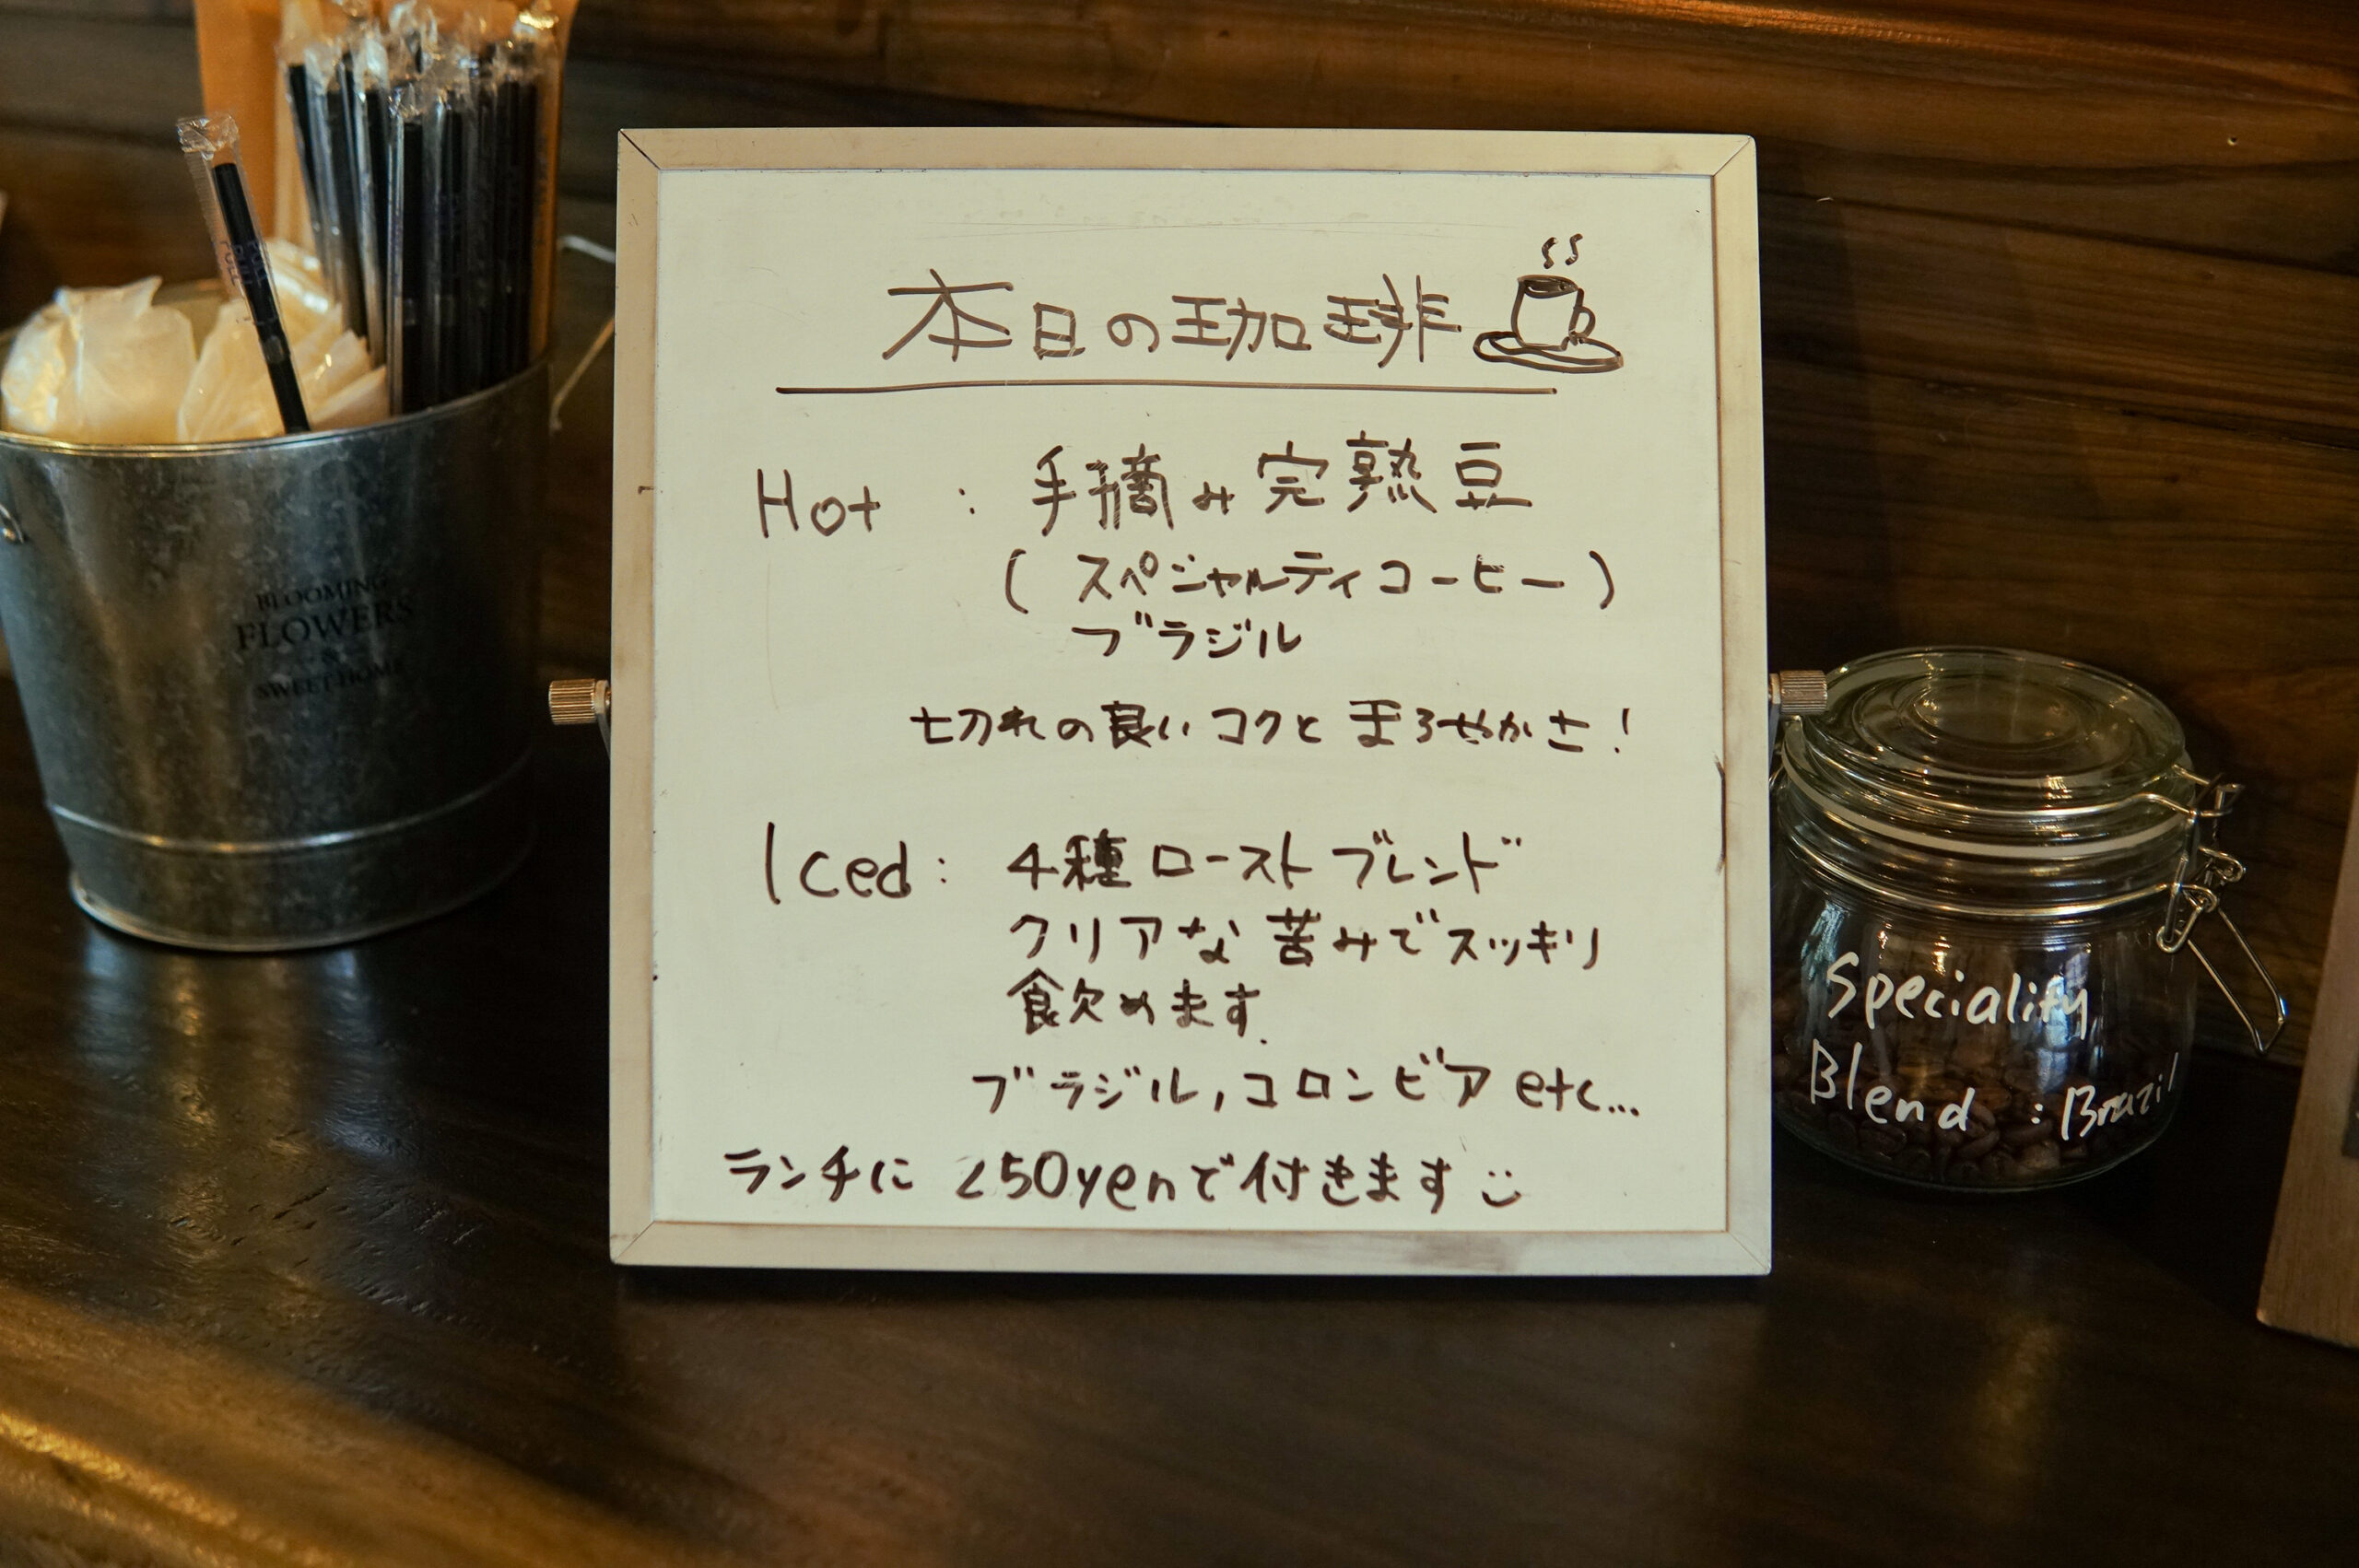 本日の珈琲
Hot : 手摘み完熟豆
( スペシャルティコーヒー )
ブラジル
切れの良いコクとまろやかさ!
Iced : 4種ローストブレンド
クリアな苦みでスッキリ
飲めます.
ブラジル,コロンビア etc...
ランチに 250yenで付きます
BLOOMING
FLOWERS
&
SWEET HOME
Speciality
Blend : Brazil